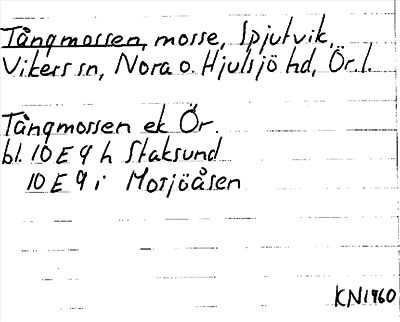 Tångmossen, mosse, Spjutvik,
Vikers sn, Nora o. Hjulsjö hd, Ör. l.
Tångmossen ek Ör.
bl. 10 E 9 h Staksund
10 E 9 i Mosjöåsen
KN1960